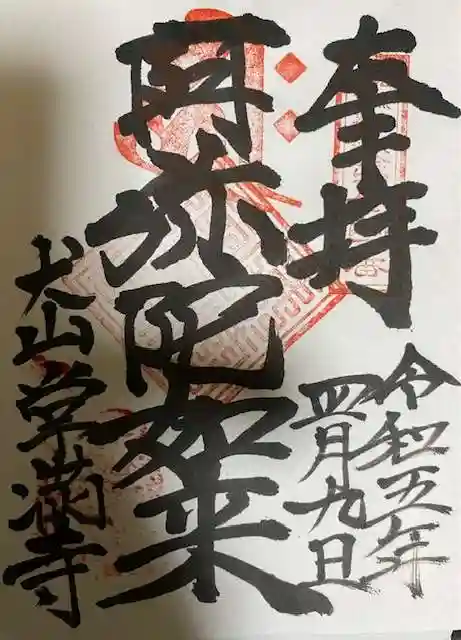 奉拝
令和五年
四月九日
阿弥陀如来
犬山 常満寺